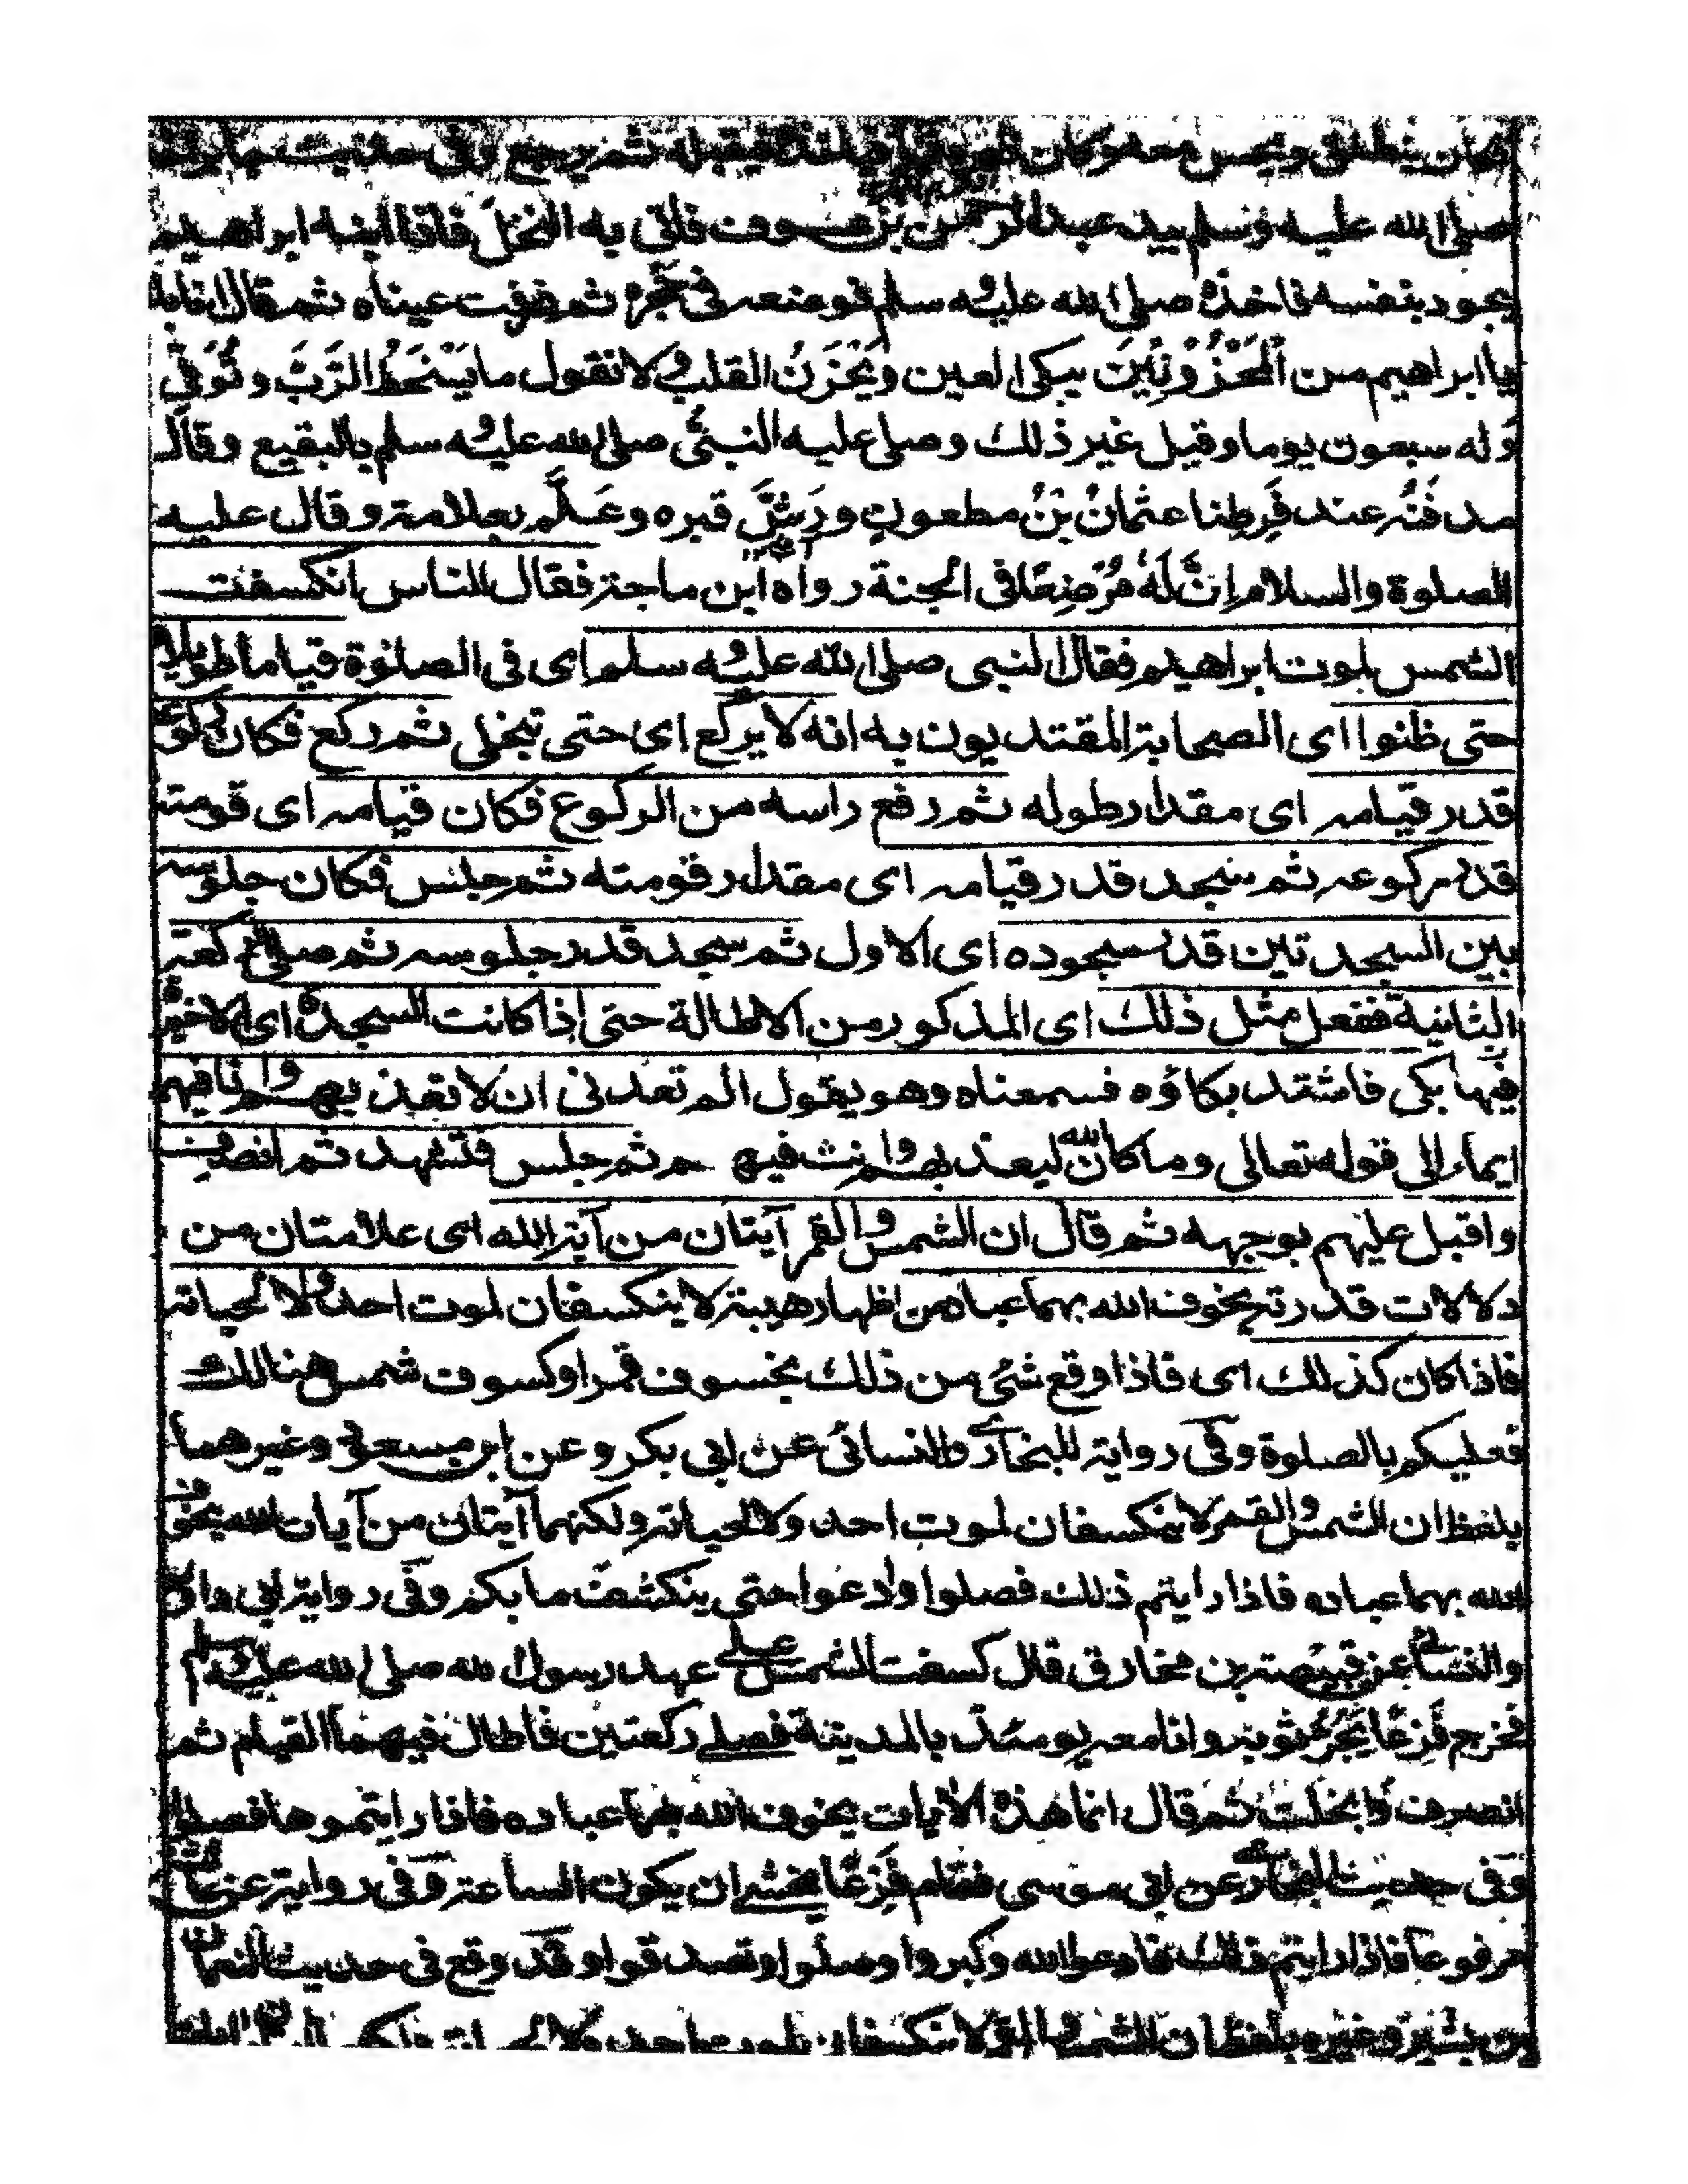 فكان ينطلق ونحن معه فيقبله ثم يرجع وفى حديث جابر اخذ
صلى الله عليه وسلم بيد عبد الرحمن بن عوف فاتى به النخل فاذا ابنه ابراهيم
يجود بنفسه فاخذه صلى الله عليه وسلم فوضعه فى حجره ثم ذرفت عيناه ثم قال انا بك
يا ابراهيم من الْمَحْزُوْنِيْنَ يبكى العين ويَحْزَنُ القلب ولا نقول ما يَسْخَطُ الرَّبَّ وتُوُفِّى
وله سبعون يوما وقيل غير ذلك وصلى عليه النبىُّ صلى الله عليه وسلم بالبقيع وقال
مدفنُه عند فَرطِنا عثمانُ بْنُ مطعون ورَشَّ قبره وعَلَّم بعلامة وقال عليه
الصلوة والسلام اِنَّ لَهُ مُرْضِعًا فى الجنة رواه ابن ماجة فقال الناس انكسفت
الشمس لموت ابراهيم فقال النبى صلى الله عليه وسلم اى فى الصلوة قياما طويلا
حتى ظنوا اى الصحابة المقتديون به انه لا يركع اى حتى تجلى ثم ركع فكان ركوعه
قدر قيامه اى مقدار طوله ثم رفع راسه من الركوع فكان قيامه اى قومته
قدر ركوعه ثم سجد قدر قيامه اى مقدار قومته ثم جلس فكان جلوسه
بين السجدتين قدر سجوده اى الاول ثم سجد قدر جلوسه ثم صلى الركعة
الثانية ففعل مثل ذلك اى المذكور من الاطالة حتى اذا كانت السجدة اى الاخيرة
فيها بكى فاشتد بكاؤه فسمعناه وهو يقول الم تعدنى ان لا تعذبهم وانا فيهم
ايماء الى قوله تعالى وما كان الله ليعذبهم وانت فيهم ثم جلس فتشهد ثم انصرف
واقبل عليهم بوجهه ثم قال ان الشمس والقمر آيتان من آية الله اى علامتان من
دلالات قدرته يخوف الله بهما عباده من اظهار هيبته لا ينكسفان لموت احد ولا لحياته
فاذا كان كذلك اى فاذا وقع شئ من ذلك بخسوف قمر او كسوف شمس هنالك
فعليكم بالصلوة وفى رواية للبخارى والنسائى عن ابى بكر وعن ابن مسعود وغيرهما
بلفظ ان الشمس والقمر لا ينكسفان لموت احد ولا لحياته ولكنهما آيتان من آيات الله يخوف
الله بهما عباده فاذا رايتم ذلك فصلوا وادعوا حتى ينكشف ما بكم وفى رواية ابى داؤد
والنسائى عن قبيصة بن مخارق قال كسفت الشمس على عهد رسول الله صلى الله عليه وسلم
فخرج فَزِعًا يَجُرُّ ثوبه وانا معه يومئذ بالمدينة فصلى ركعتين فاطال فيهما القيام ثم
انصرف وانجلت ثم قال انما هذه الايات يخوف الله بها عباده فاذا رايتموها فصلوا
وفى حديث البخارى عن ابى موسى فقام فَزِعًا يخشى ان يكون الساعة وفى رواية عن عائشة
مرفوعا فاذا رايتم ذلك فادعوا الله وكبروا وصلوا وتصدقوا وقد وقع فى حديث النعمان
بن بشير وغيره بلفظ ان الشمس والقمر لا ينكسفان لموت احد ولا لحياته